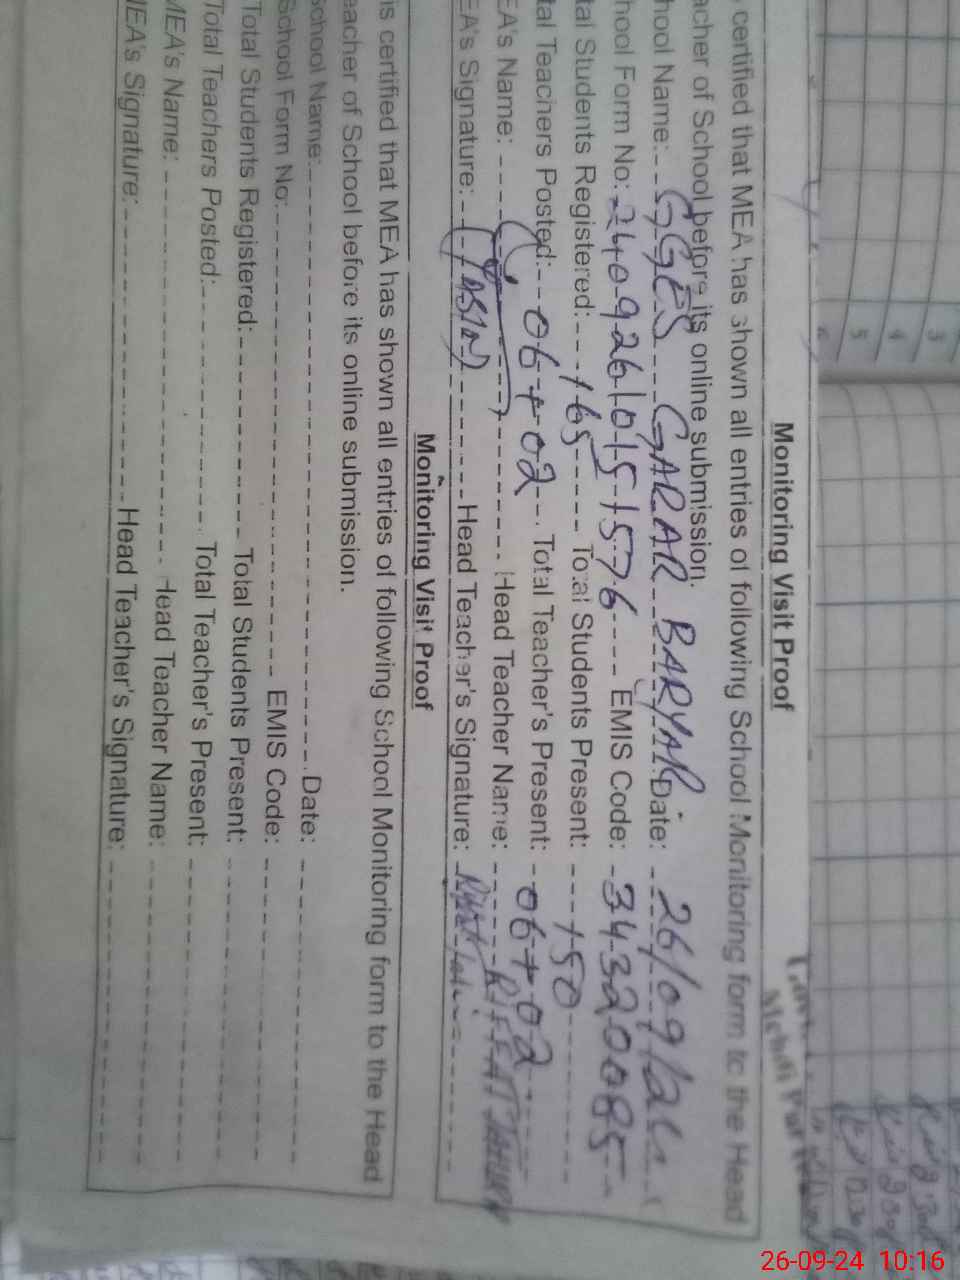 Monitoring Visit Proof
certified that MEA has shown all entries of following School Monitoring form to the Head
acher of School before its online submission.
hool Name: GGES GARAR BARYAR Date: 26/09/24
hool Form No: 24092610151576 EMIS Code: 34320085
tal Students Registered: 165 Total Students Present: 150
tal Teachers Posted: 06+02 Total Teacher's Present: 06+02
EA's Name: Head Teacher Name: RIFFAT
EA's Signature: (YASIN) Head Teacher's Signature:
Monitoring Visit Proof
is certified that MEA has shown all entries of following School Monitoring form to the Head
eacher of School before its online submission.
School Name: Date:
School Form No: EMIS Code:
Total Students Registered: Total Students Present:
Total Teachers Posted: Total Teacher's Present:
MEA's Name: Head Teacher Name:
MEA's Signature: Head Teacher's Signature:
3
4
5
6
26-09-24 10:16